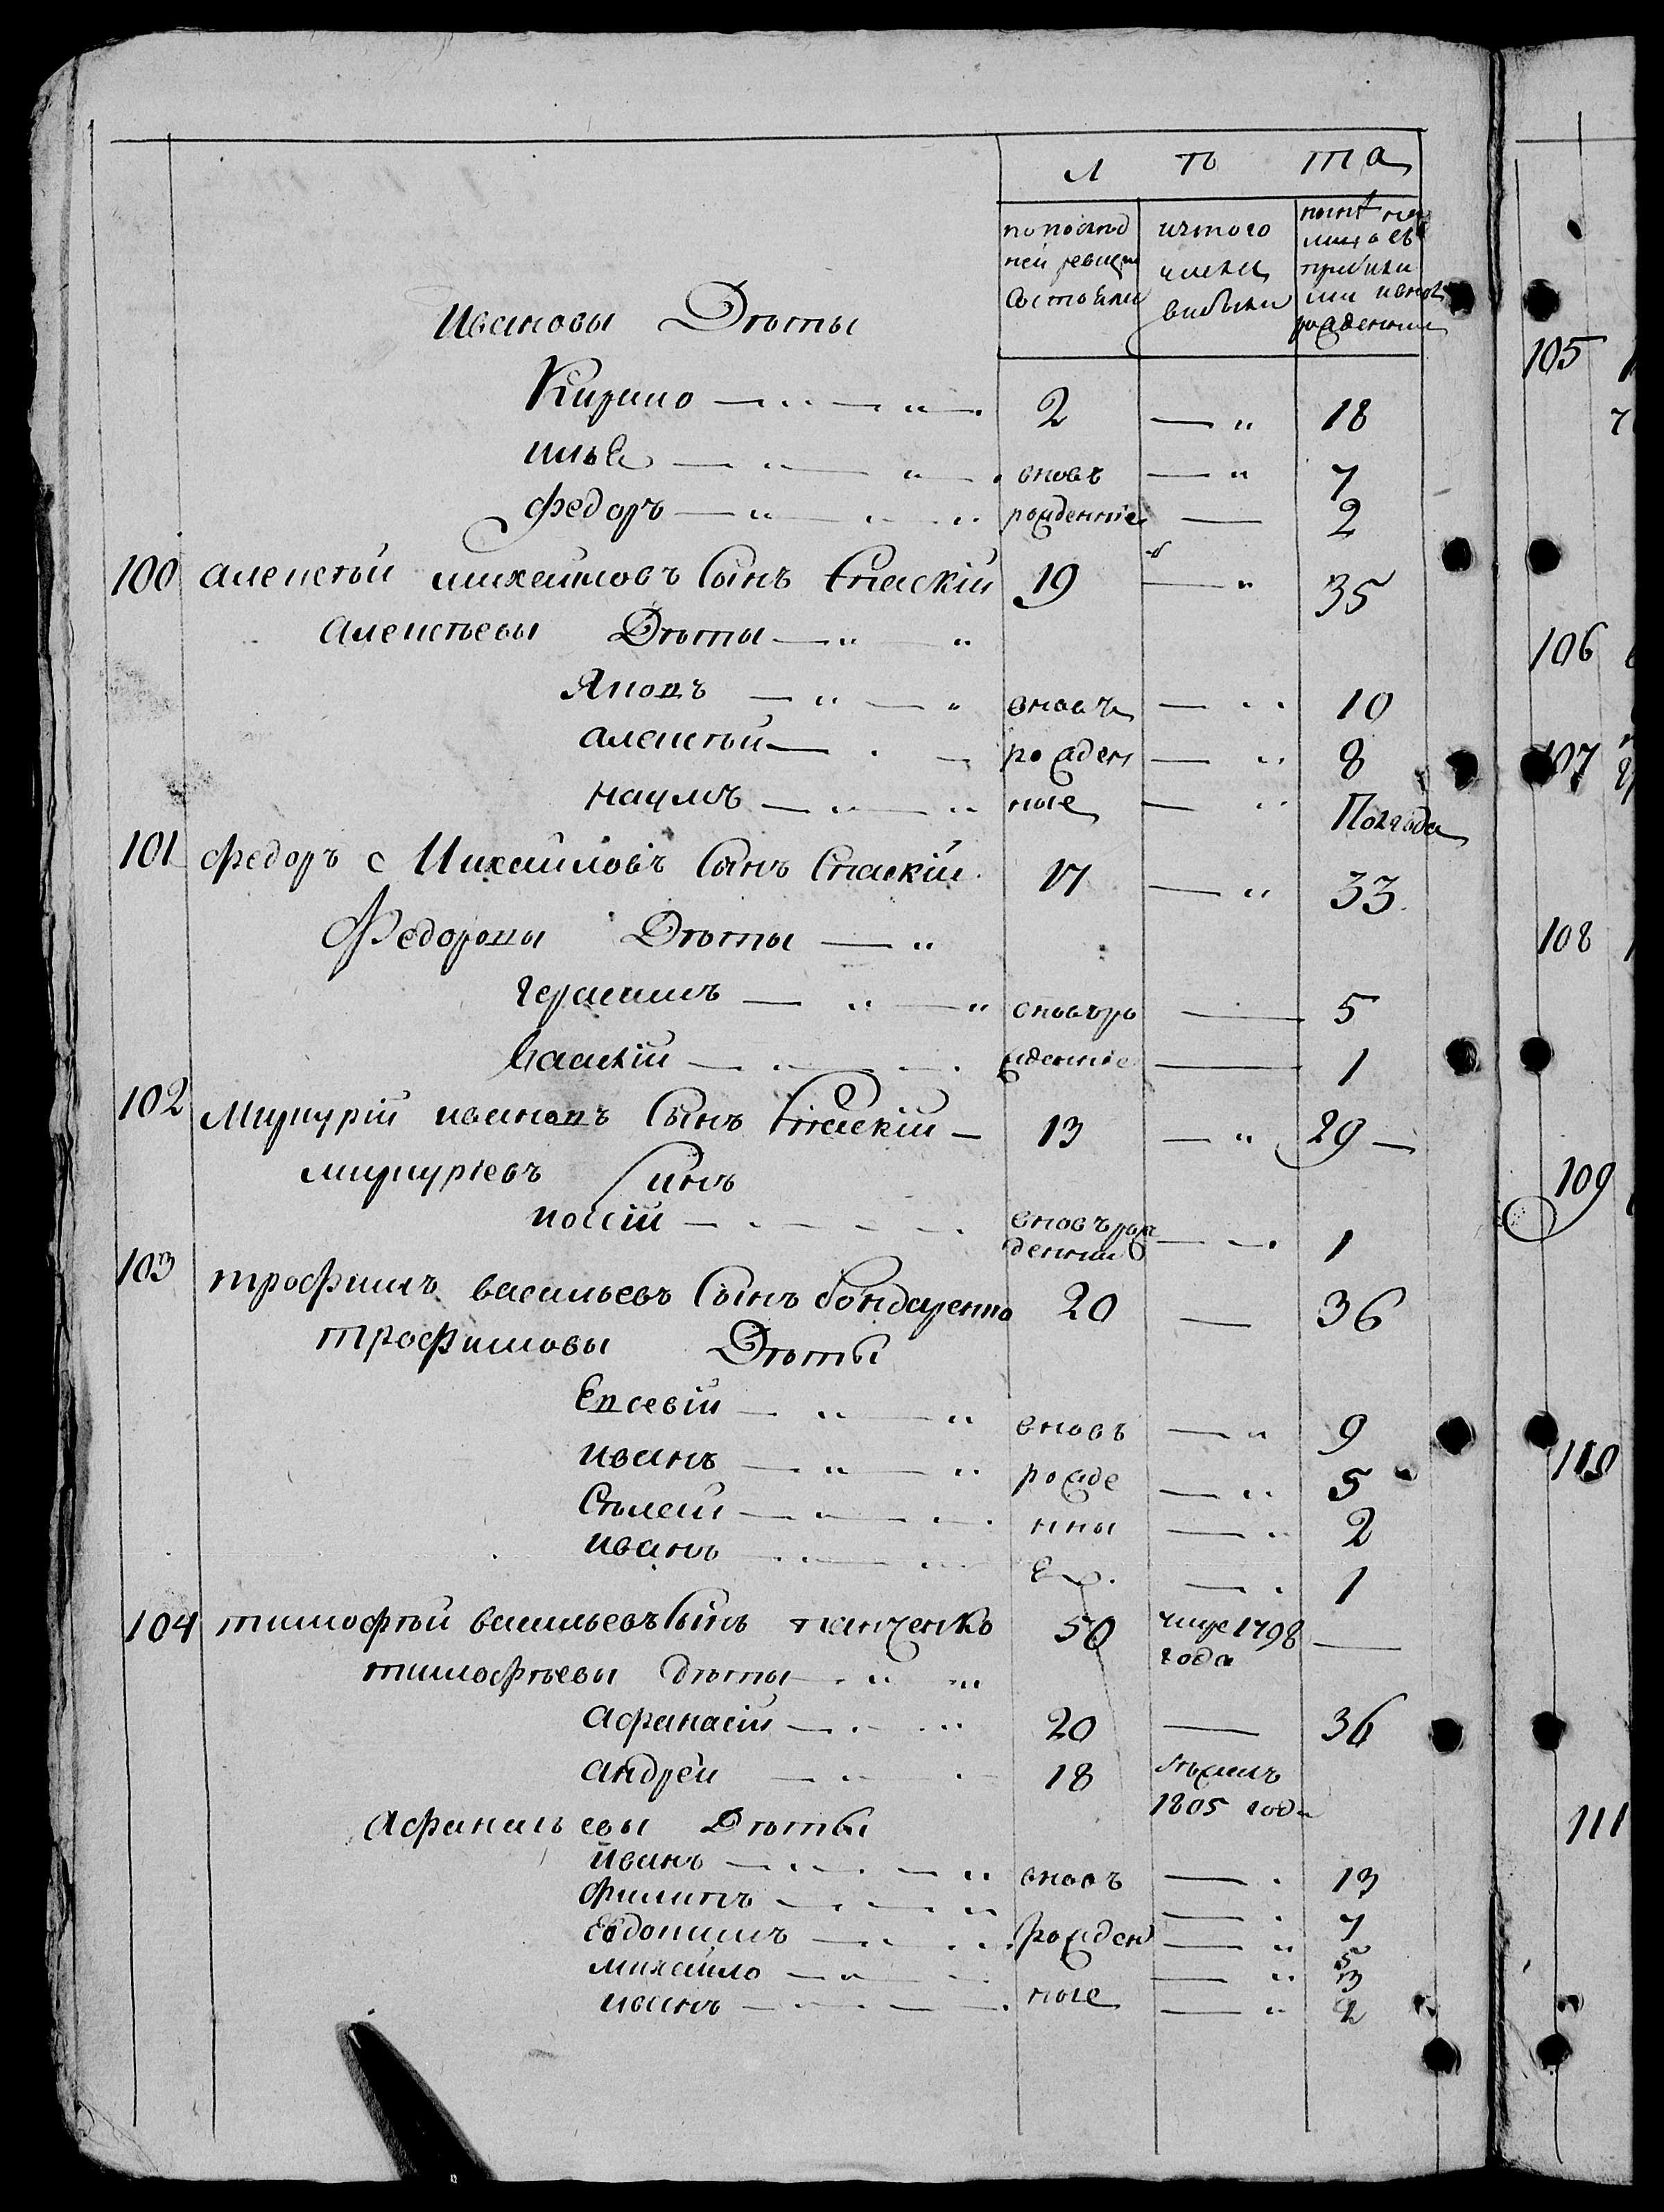 Л ѣ та
по послѣд ней ревизіи состояли
ис того числа выбыли
рожденныи
Ивановы Дѣты
Кирило 2 18
илья вновъ 7
Федоръ рожденніе 2
100 алексѣй михаиловъ Сынъ Спаскій 19 35
алексѣевы Дѣты
Яковъ вновъ 10
алексѣй рожден 8
наумъ ные Полгода
101 федоръ с Михаиловъ Сынъ Спаскій 17 33
Федоровы Дѣты
Герасимъ вновъ ро 5
Василій жденніе 1
102 Меркурій ивановъ Сынъ Спаскій 13 29
меркуріевъ Синъ
вновъ рож
денный 1
103 трофимъ васильевъ Сынъ бондаренко 20 36
трофимовы Дѣты
Евсевій вновъ 9
иванъ рожде 5
нны 2
иванъ е 1
104 тимофѣй васильевъ Сынъ панченко 50 1798 года
тимофѣевы дѣты
афанасій 20 36
андрей 18
1805 года
Афанасьевы Дѣты
иванъ вновъ 13
филипъ 7
Евдокимъ рожден 5
михайло 3
иванъ ные 2
105
106
107
108
109
110
111